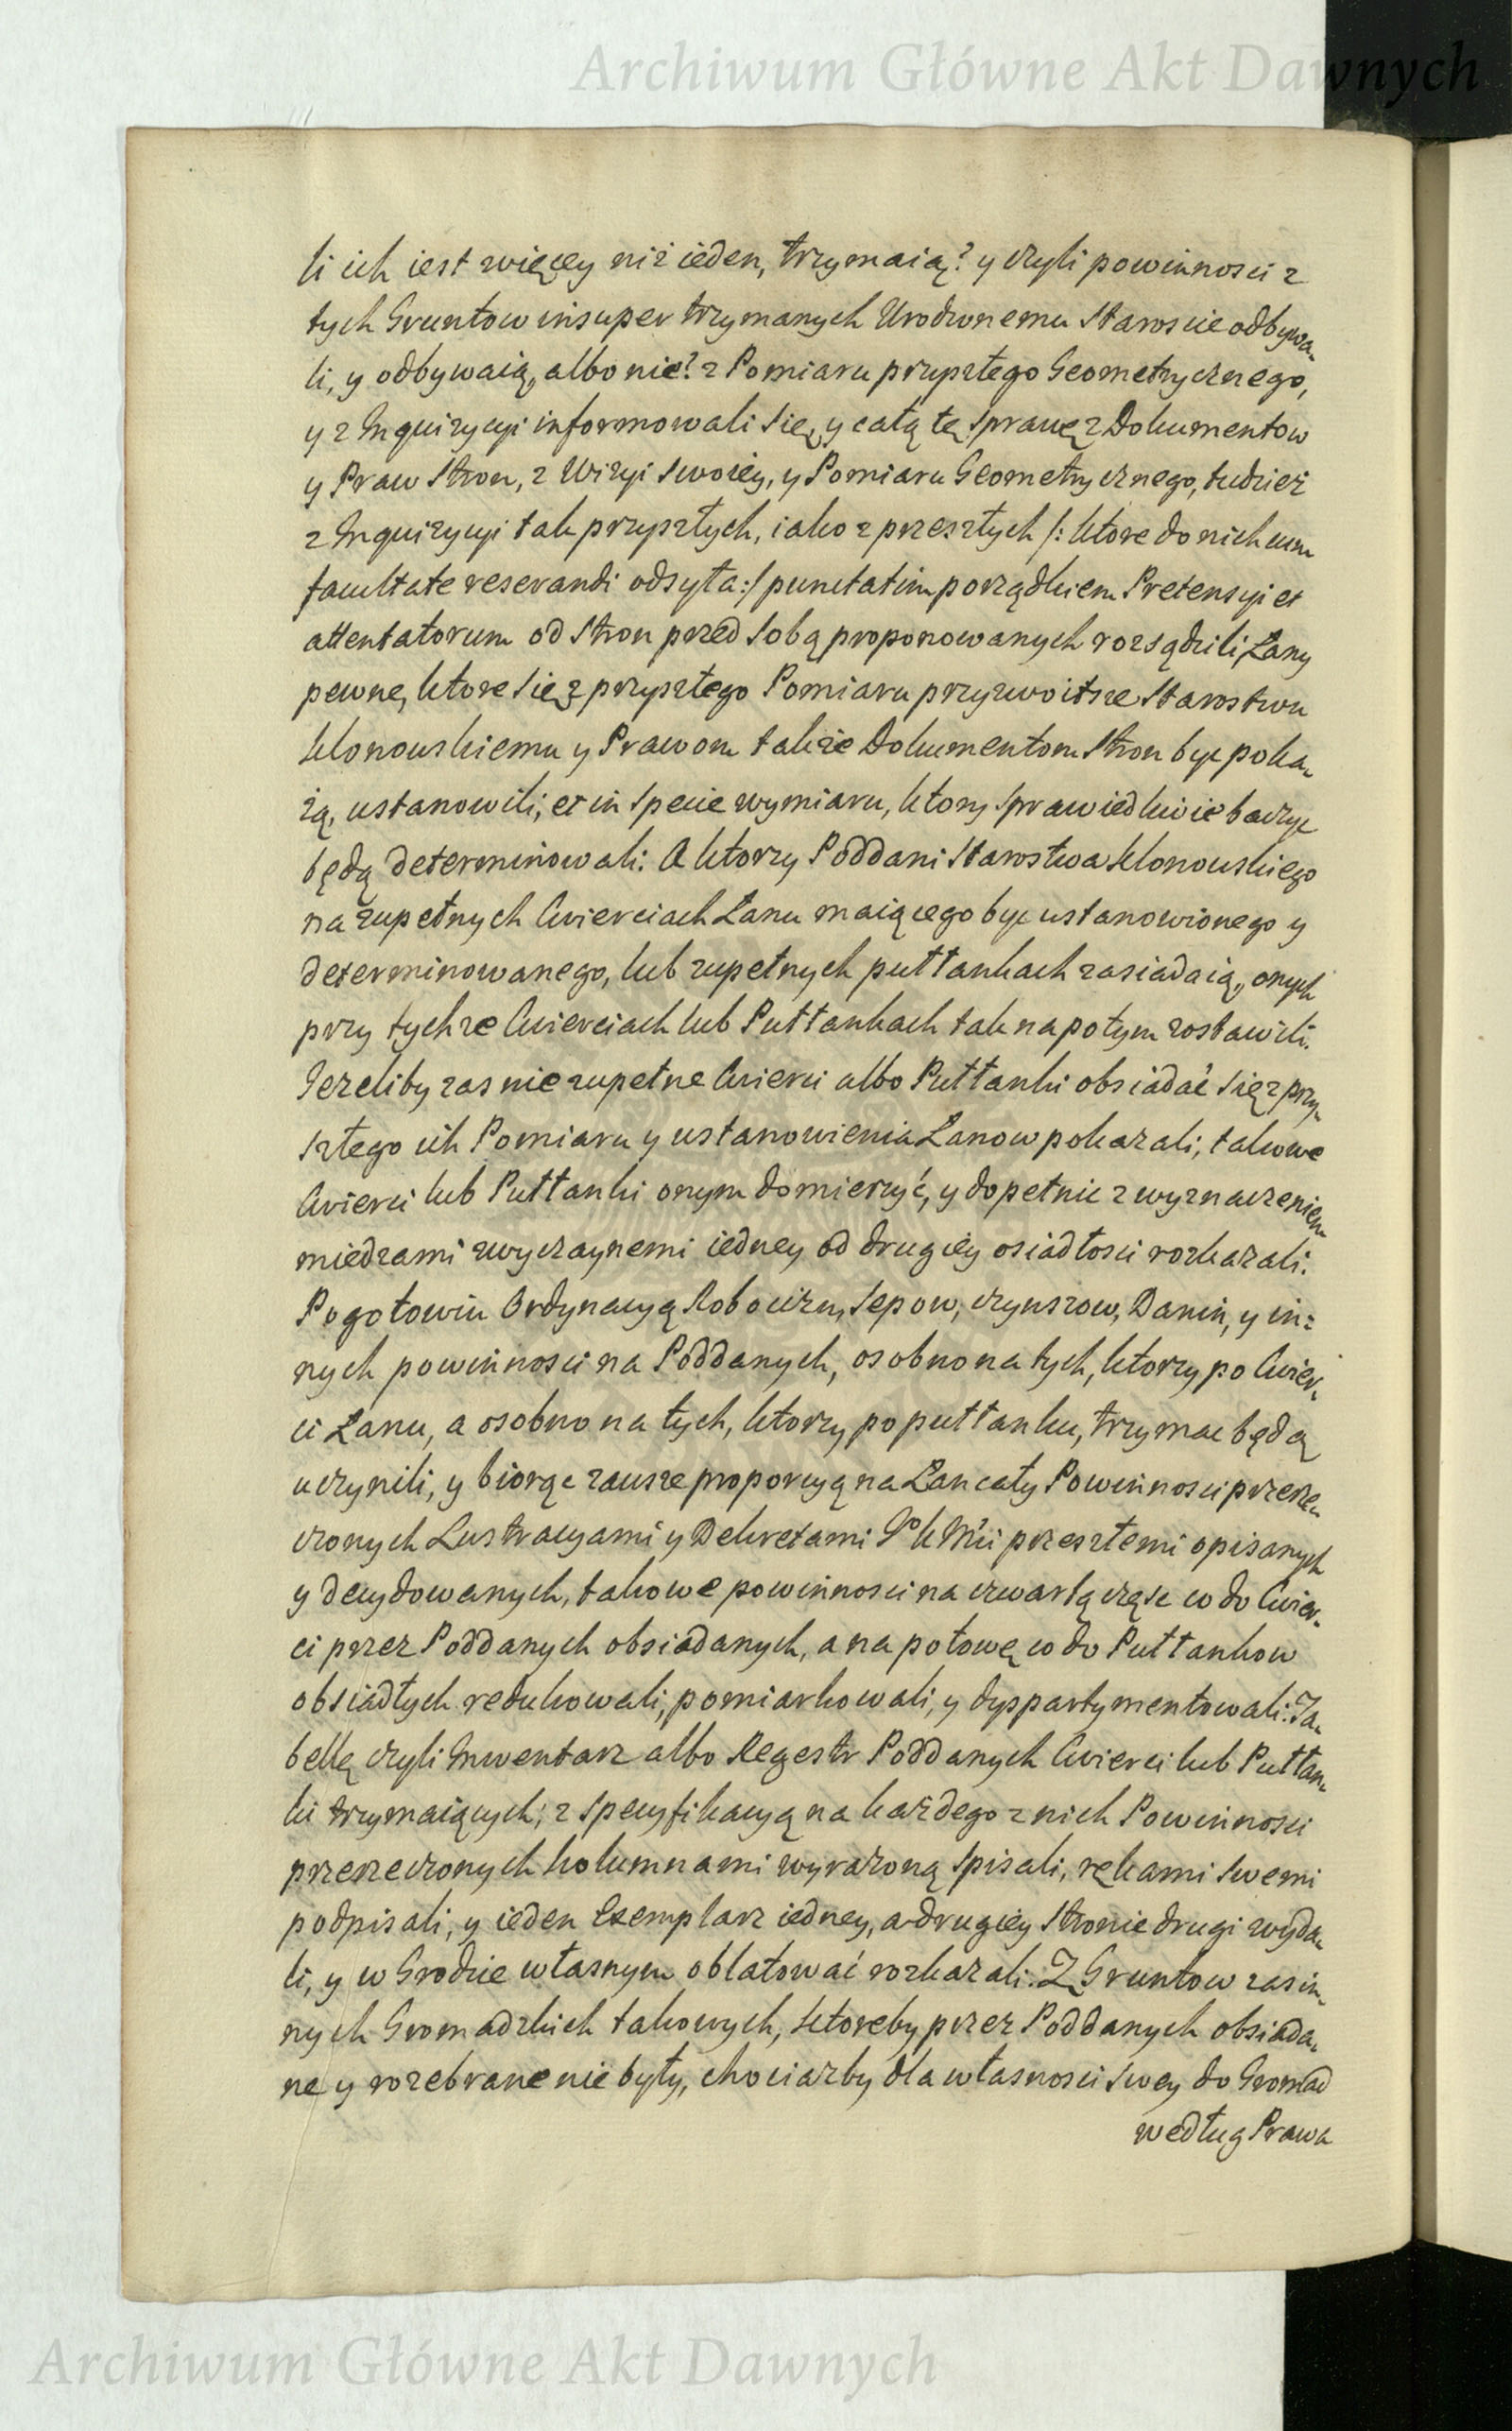 Archiwum Główne Akt Dawnych
li ich iest więcey niż ieden, trzymaią? y czyli powinnosci z
tych Gruntow insuper trzymanych Urodzonemu Staroscie odbywa-
li, y odbywaią, albo nie? z Pomiaru przyszłego Geometrycznego,
y z Inquizycyi informowali się, y całą tę sprawę z Dokumentow
y Praw Stron, z Wizyi swoiey, y Pomiaru Geometrycznego, tudzież
z Inquizycyi tak przyszłych, iako z przeszłych /: ktore do nich cum
facultate reserandi odsyła :/ punctatim porządkiem Pretensyi et
attentatorum od Stron przed sobą proponowanych rozsądzili Łany
pewne, ktore się z przyszłego Pomiaru przyzwoitsze Starostwu
Klonowskiemu y Prawom także Dokumentom Stron być poka-
żą, ustanowili; et in specie wymiaru, ktory sprawiedliwie baczyc
będą determinowali. A ktorzy Poddani Starostwa Klonowskiego
na zupełnych Cwierciach Łanu maiącego byc ustanowionego y
determinowanego, lub zupełnych pułłankach zasiadaią, onych
przy tychze Cwierciach lub Pułłankach tak na potym zostawili.
Jezeliby zas nie zupełne Cwierci albo Pułłanki obsiadać się z przy-
szłego ich Pomiaru y ustanowienia Łanow pokazali, takowe
Cwierci lub Pułłanki onym domierzyć, y dopełnic z wyznaczeniem
miedzami zwyczaynemi iedney od drugiey osiadłosci rozkazali.
Pogotowiu Ordynacyą Robocizn, Sepow, czynszow, Danin, y in=
nych powinnosci na Poddanych, osobno na tych, ktorzy po Cwier-
ci Łanu, a osobno na tych, ktorzy po pułłanku, trzymac będą
uczynili, y biorąc zawsze proporcyą na Łan cały Powinnosci przerze-
czonych Lustracyami y Dekretami JoKMci przeszłemi opisanych
y decydowanych, takowe powinnosci na czwartą częsc co do Cwier-
ci przez Poddanych obsiadanych, a na połowę co do Pułłankow
obsiadłych redukowali, pomiarkowali, y dyspartymentowali. Ta-
bellę czyli Inwentarz albo Regestr Poddanych Cwierci lub Pułłan-
ki trzymaiących, z specyfikacyą na każdego z nich Powinnosci
przerzeczonych kolumnami wyrażoną spisali, rękami swemi
podpisali, y ieden Exemplarz iedney, a drugiey Stronie drugi wyda-
li, y w Grodzie własnym oblatować rozkazali. Z Gruntow zas in-
nych Gromadzkich takowych, ktoreby przez Poddanych obsiada-
ne y rozebrane nie były, chociażby dla własnosci swey do Gromad
według Prawa
Archiwum Główne Akt Dawnych